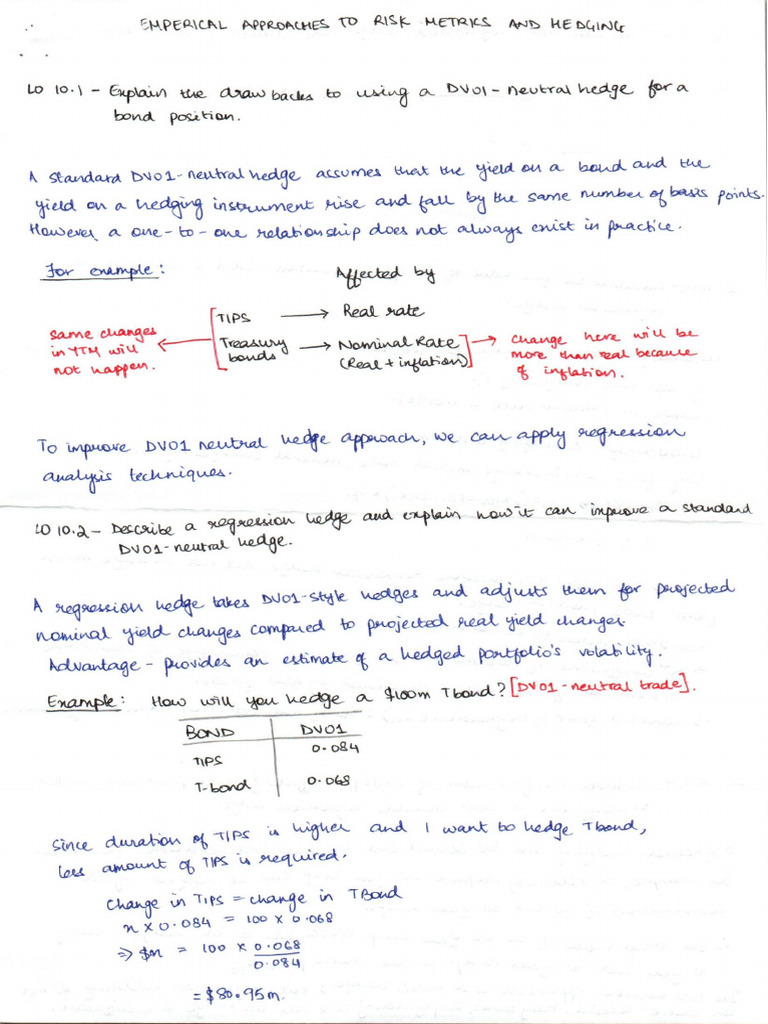 EMPERICAL APPROACHES TO RISK METRICS AND HEDGING
LO 10.1 - Explain the drawbacks to using a DV01-neutral hedge for a
bond position.
A standard DV01-neutral hedge assumes that the yield on a bond and the
yield on a hedging instrument rise and fall by the same number of basis points.
However a one-to-one relationship does not always exist in practice.
For example:
Affected by
TIPS → Real rate
Treasury bonds → Nominal Rate
(Real + inflation)
same changes
in YTM will
not happen.
change here will be
more than real because
of inflation.
To improve DV01 neutral hedge approach, we can apply regression
analysis techniques.
LO 10.2 - Describe a regression hedge and explain how it can improve a standard
DV01-neutral hedge.
A regression hedge takes DV01-style hedges and adjusts them for projected
nominal yield changes compared to projected real yield changes.
Advantage - provides an estimate of a hedged portfolio's volatility.
Example: How will you hedge a $100m T bond? [DV01-neutral trade].
BOND DV01
TIPS 0.084
T-bond 0.068
Since duration of TIPS is higher and I want to hedge T bond,
less amount of TIPS is required.
Change in TIPS = change in T Bond
x × 0.084 = 100 × 0.068
⇒ $x = 100 × 0.068
0.084
= $80.95m.